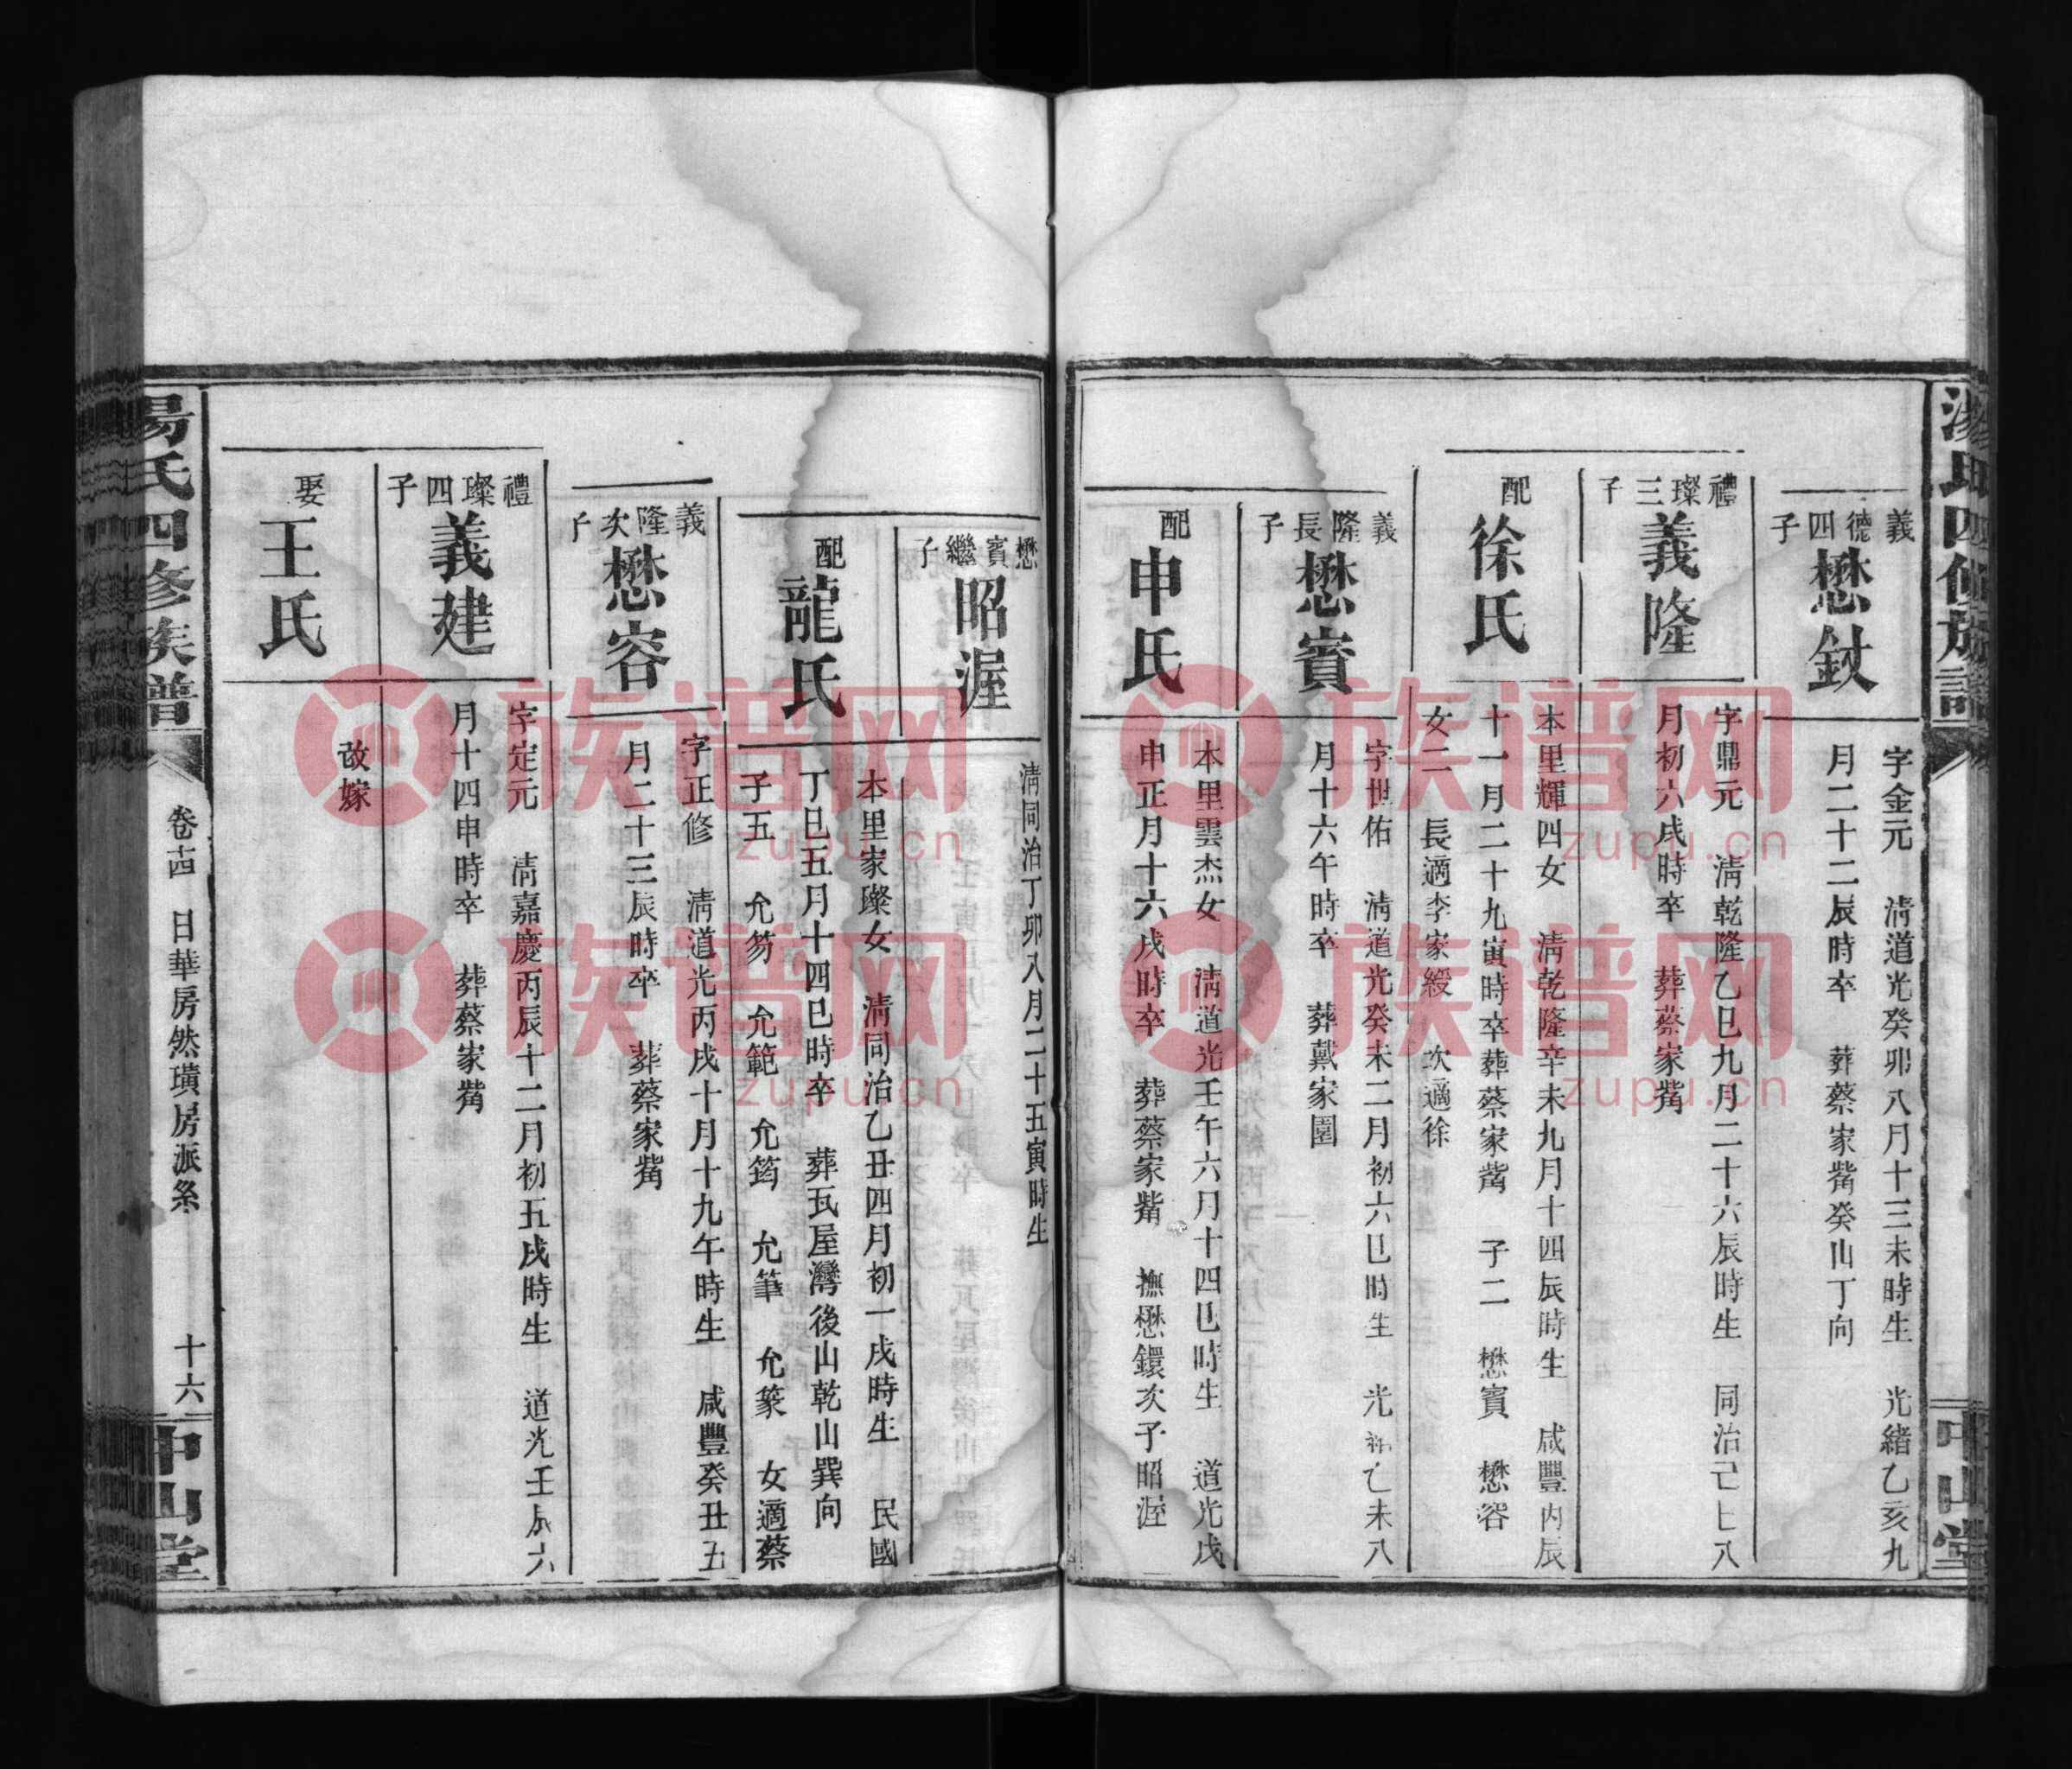 湯氏四修族譜
中山堂
義德四子
懋釱
字金元 清道光癸卯八月十三未時生 光緒乙亥九
月二十二辰時卒 葬蔡家觜癸山丁向
禮璨三子
義隆
字鼎元 清乾隆乙巳九月二十六辰時生 同治己巳八
月初六戌時卒 葬蔡家觜
配
徐氏
本里輝四女 清乾隆辛未九月十四辰時生 咸豐丙辰
十一月二十九寅時卒葬蔡家觜 子二 懋賓 懋容
女二 長適李家綬 次適徐
義隆長子
懋賓
字世佑 清道光癸未二月初六巳時生 光 未八
月十六午時卒 葬戴家園
配
申氏
本里雲杰女 清道光壬午六月十四巳時生 道光戊
申正月十六戌時卒 葬蔡家觜 撫懋鐶次子昭渥
懋賓繼子
昭渥
清同治丁卯八月二十五寅時生
配
龍氏
本里家璨女 清同治乙丑四月初一戌時生 民國
丁巳五月十四巳時卒 葬瓦屋灣後山乾山巽向
子五 允笏 允範 允筠 允筆 允篆 女適蔡
義隆次子
懋容
字正修 清道光丙戌十月十九午時生 咸豐癸丑五
月二十三辰時卒 葬蔡家觜
禮璨四子
義建
字定元 清嘉慶丙辰十二月初五戌時生 道光壬辰六
月十四申時卒 葬蔡家觜
娶
王氏
改嫁
湯氏四修族譜
卷十四 日華房然璜房派系
十六
中山堂
族谱网
zupu.cn
族谱网
zupu.cn
族谱网
zupu.cn
族谱网
zupu.cn